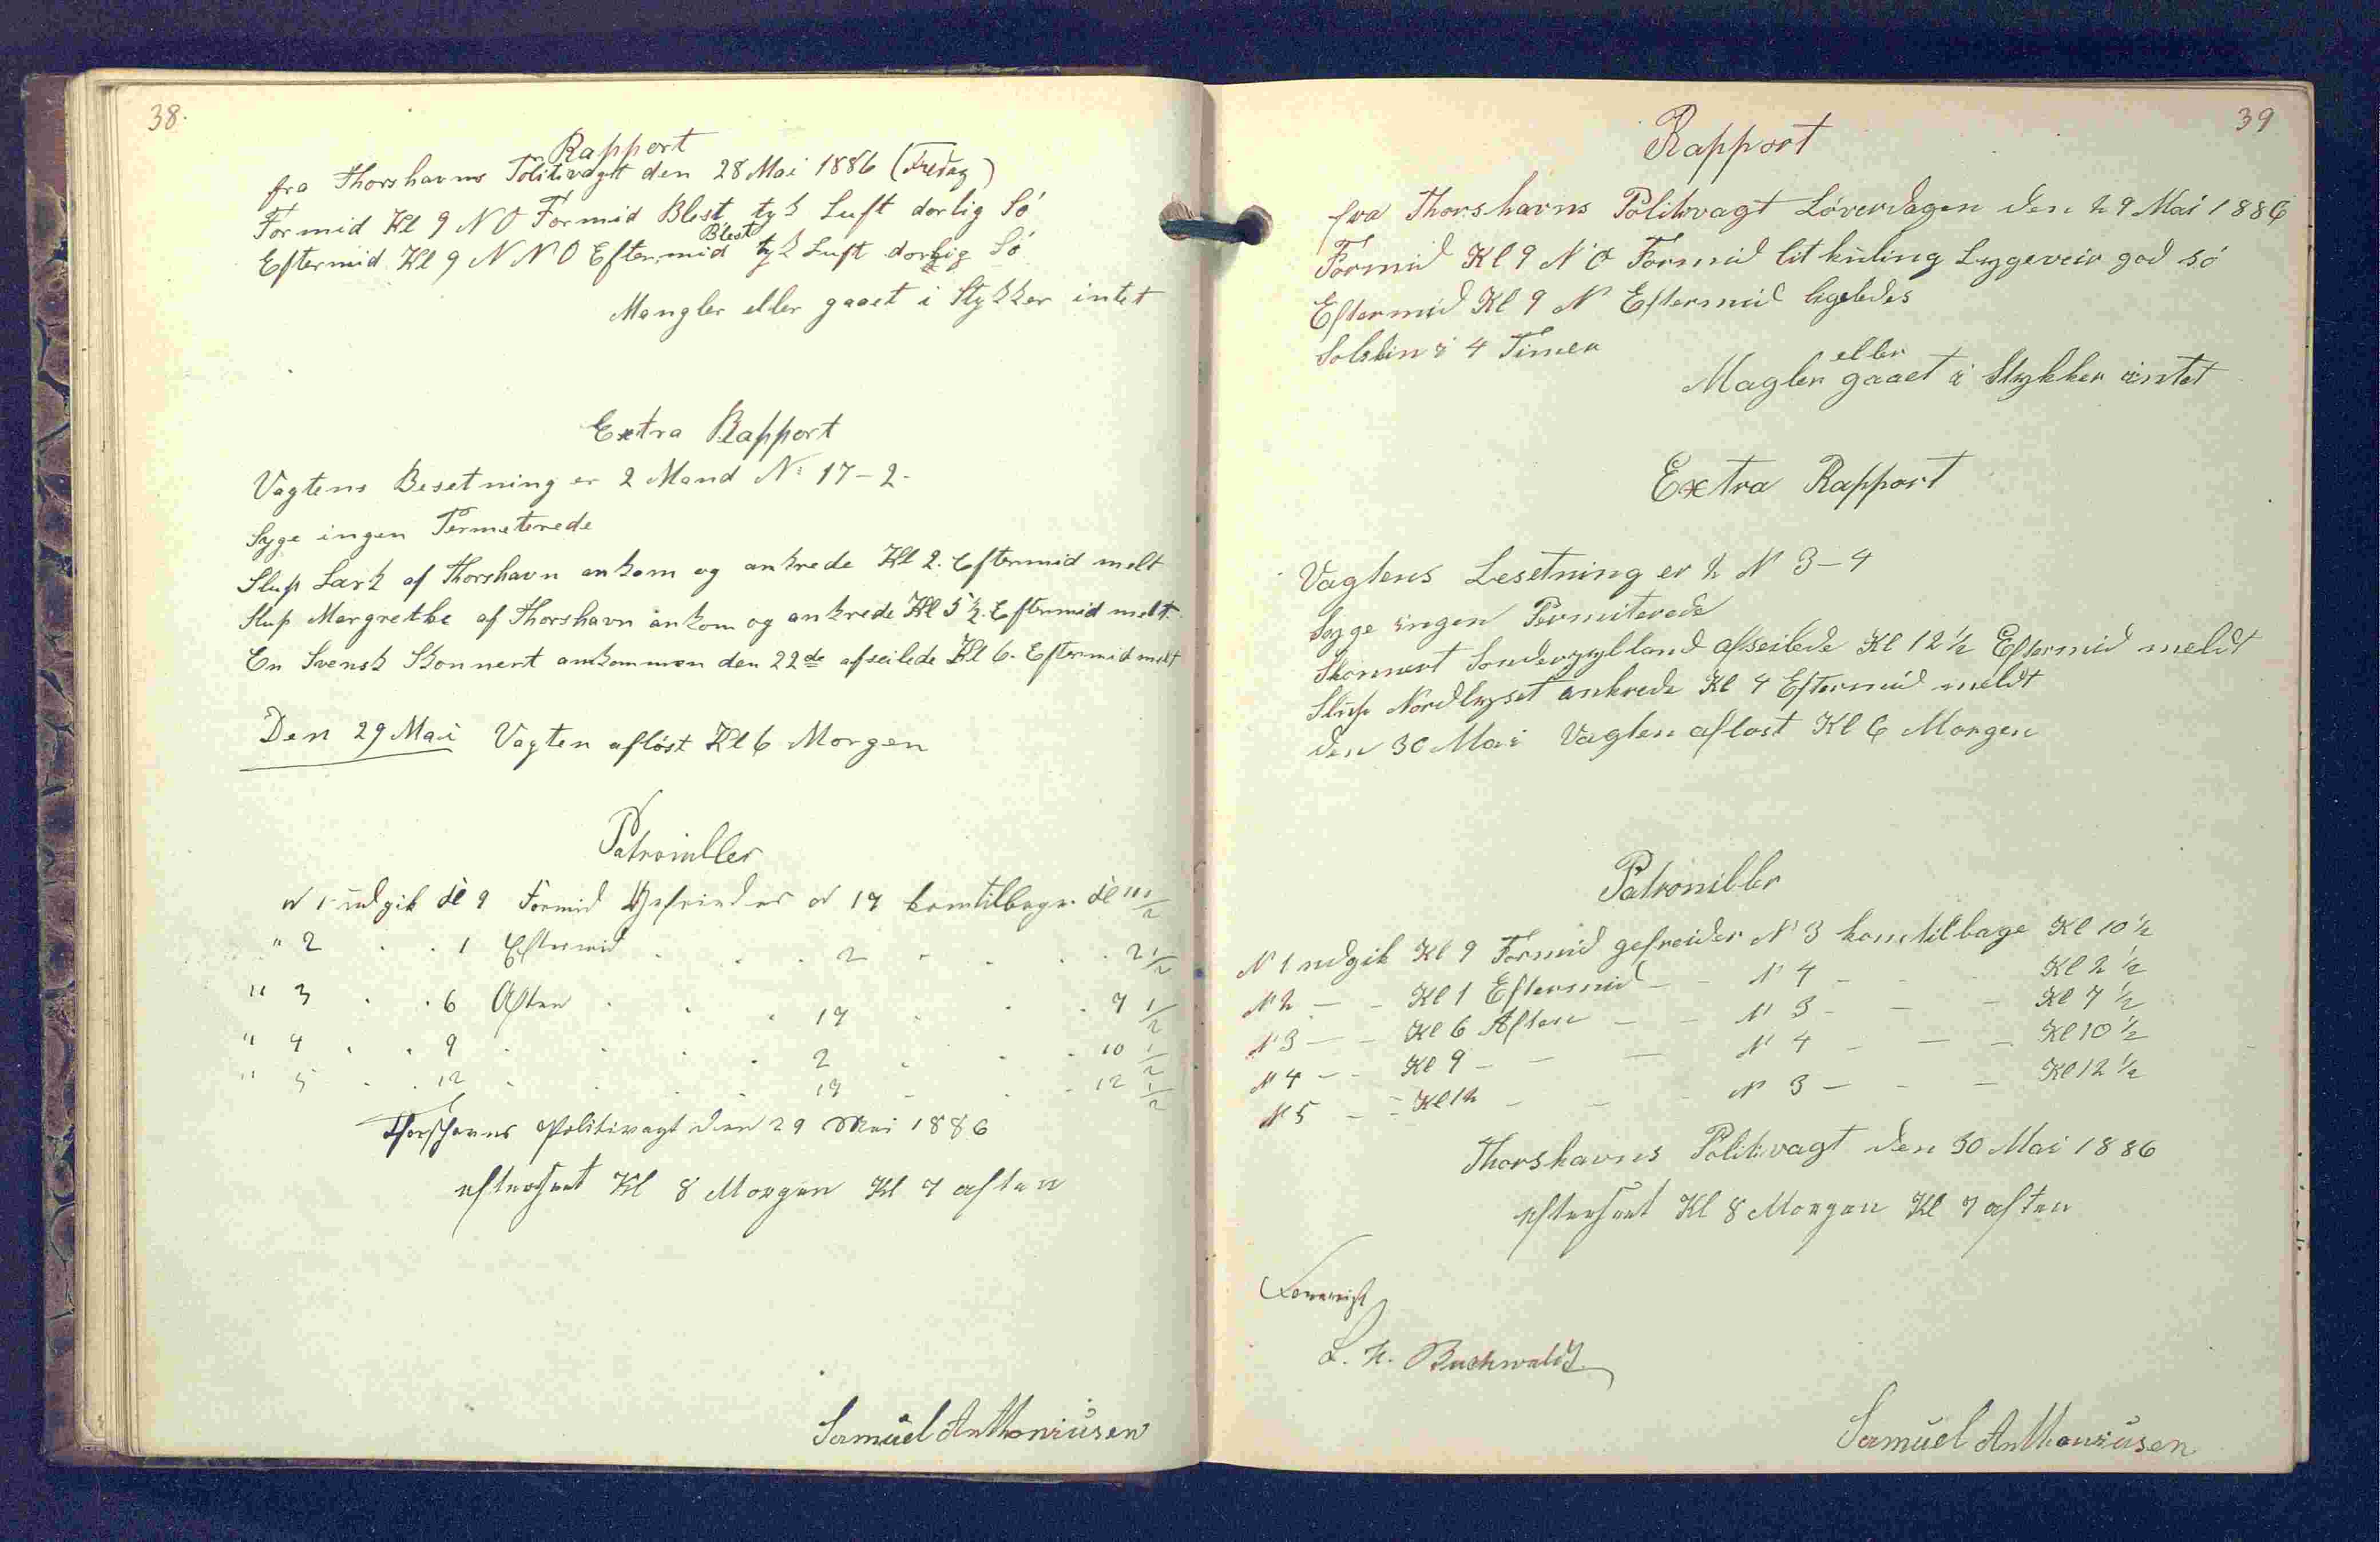 38.
Rapport
fra Thorshavns Politivagt den 28 Mai 1886 (Fredag)
Formid Kl 9 NO Formid Blest tyk Luft dorlig Só
Eftermid Kl 9 NNO Eftermid Blest tyk Luft dorlig Só
Mangler eller gaaet i Stykker intet
Extra Rapport
Vagtens Besetning er 2 Mand N: 17-2.
Syge ingen Permeterede
Slup Lark af Thorshavn ankom og ankrede Kl 2. Eftermid melt
Slup Margrethe af Thorshavn ankom og ankrede Kl 5 1/2. Eftermid melt.
En Svensk Skonnert ankommen den 22de afseilede Kl 6. Eftermid melt
Den 29 Mai Vagten aflóst Kl 6 Morgen
Patroiuller
N 1 udgik Kl 9 Formid Gefreider N 17 komtilbage Kl 11 1/2
" 2 . . 1 Eftermid . . . 2 . . . . 2 1/2
" 3 . . 6 Aften . . . 17 . . . 7 1/2
" 4 . . 9 . . . . 2 . . . 10 1/2
" 5 . . 12 . . . 17 . . . 12 1/2
Thorshavns Politivagt den 29 Mai 1886
efterseet Kl 8 Morgen Kl 7 aften
Samuel Anthoniusen
39
Rapport
fra Thorshavns Politivagt Lóverdagen den 29 Mai 1886
Formid Kl 9 NO Formid lit kuling Lygeveir god só
Eftermid Kl 9 N Eftermid ligeledes
Solskin i 4 Timer
Magler eller gaaet i Stykker intet
Extra Rapport
Vagtens Besetning er 2 N 3-4
Syge ingen Permiterede
Skonnert Sonderjylland afseilede Kl 12 1/2 Eftermid meldt
Slup Nordlyset ankrede Kl 4 Eftermid meldt
den 30 Mai Vagten aflost Kl 6 Morgen
Patroniller
N 1 udgik Kl 9 Formid gefreider N 3 komtilbage Kl 10 1/2
N 2 - - Kl 1 Eftermid - - N 4 - - - Kl 2 1/2
N 3 - - Kl 6 Aften - - N 3 - - - Kl 7 1/2
N 4 - - Kl 9 - - - N 4 - - - Kl 10 1/2
N 5 - - Kl 12 - - - N 3 - - - Kl 12 1/2
Thorshavns Politivagt den 30 Mai 1886
efterseet Kl 8 Morgen Kl 7 aften
L. H. Buchwaldt
Samuel Anthoniusen